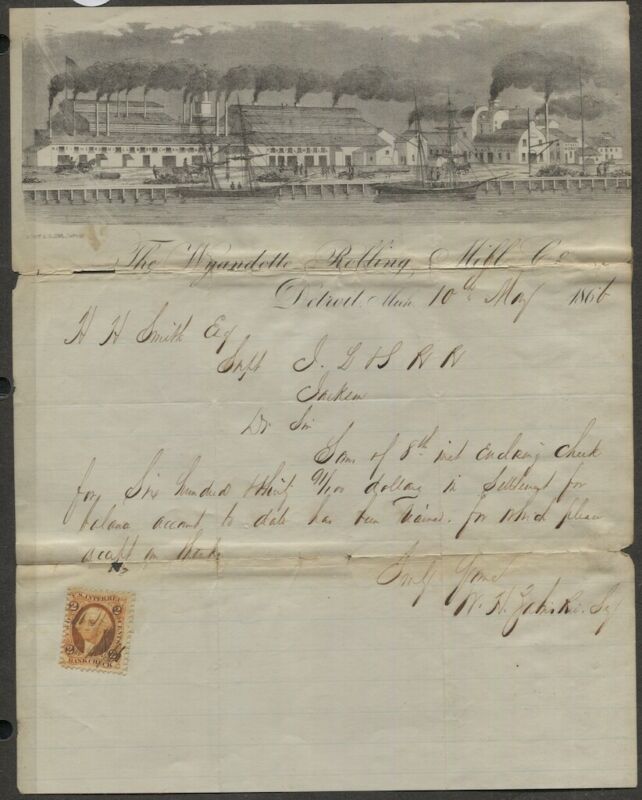 The Wyandotte Rolling Mill Co.
Detroit, Mich 10th May 1866
H H Smith Esq
Supt J. L & S R R
Jackson
Dr Sir
of 8th inst Enclosing Check
for Six hundred & thirty 91/100 dollars in Settlement for
balance account to date has been, for which please
accept my thanks
Truly Yours
W. H. Secy
U.S. INTER. REV.
2 2
BANK CHECK